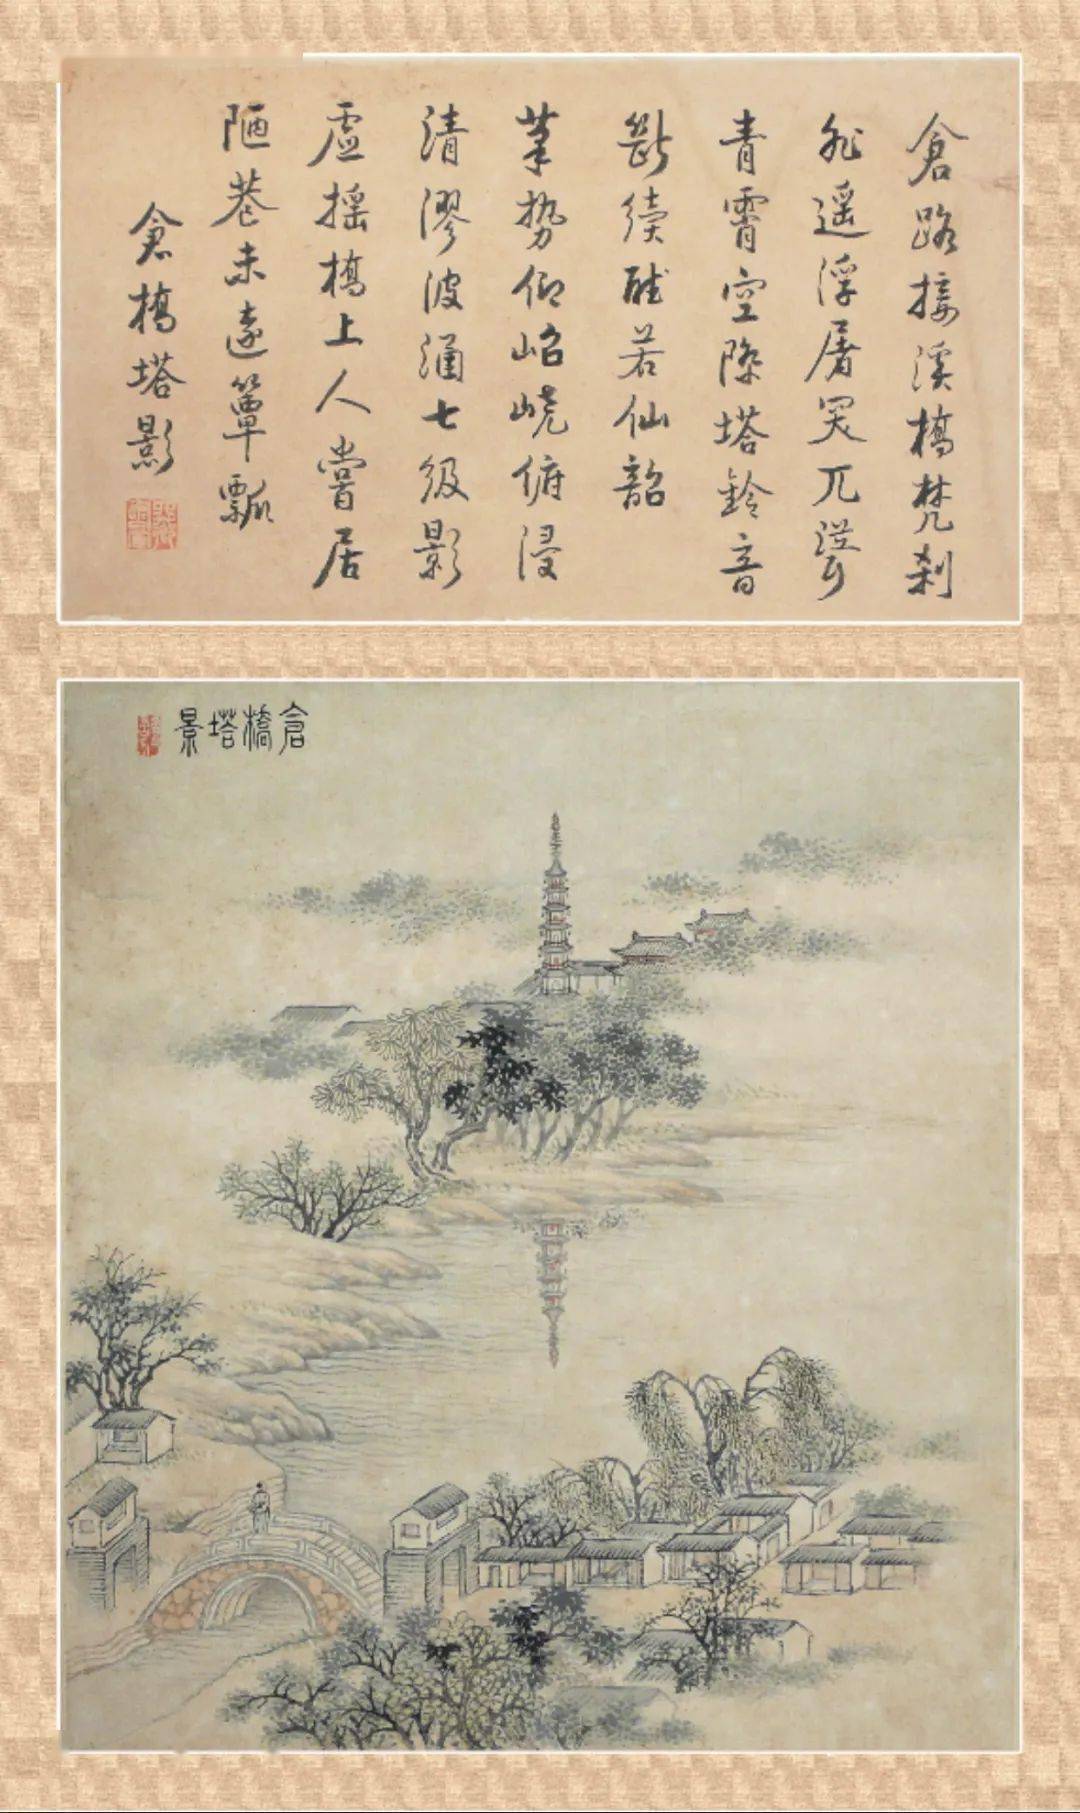 倉路接溪橋梵刹
非遥浮屠突兀聳
青霄空際塔鈴音
斷續酷若仙韶
筆勢仰岧嶢俯浸
清漻波涌七級影
虛摇橋上人嘗居
陋巷未遠簞瓢
倉橋塔影
倉橋塔景